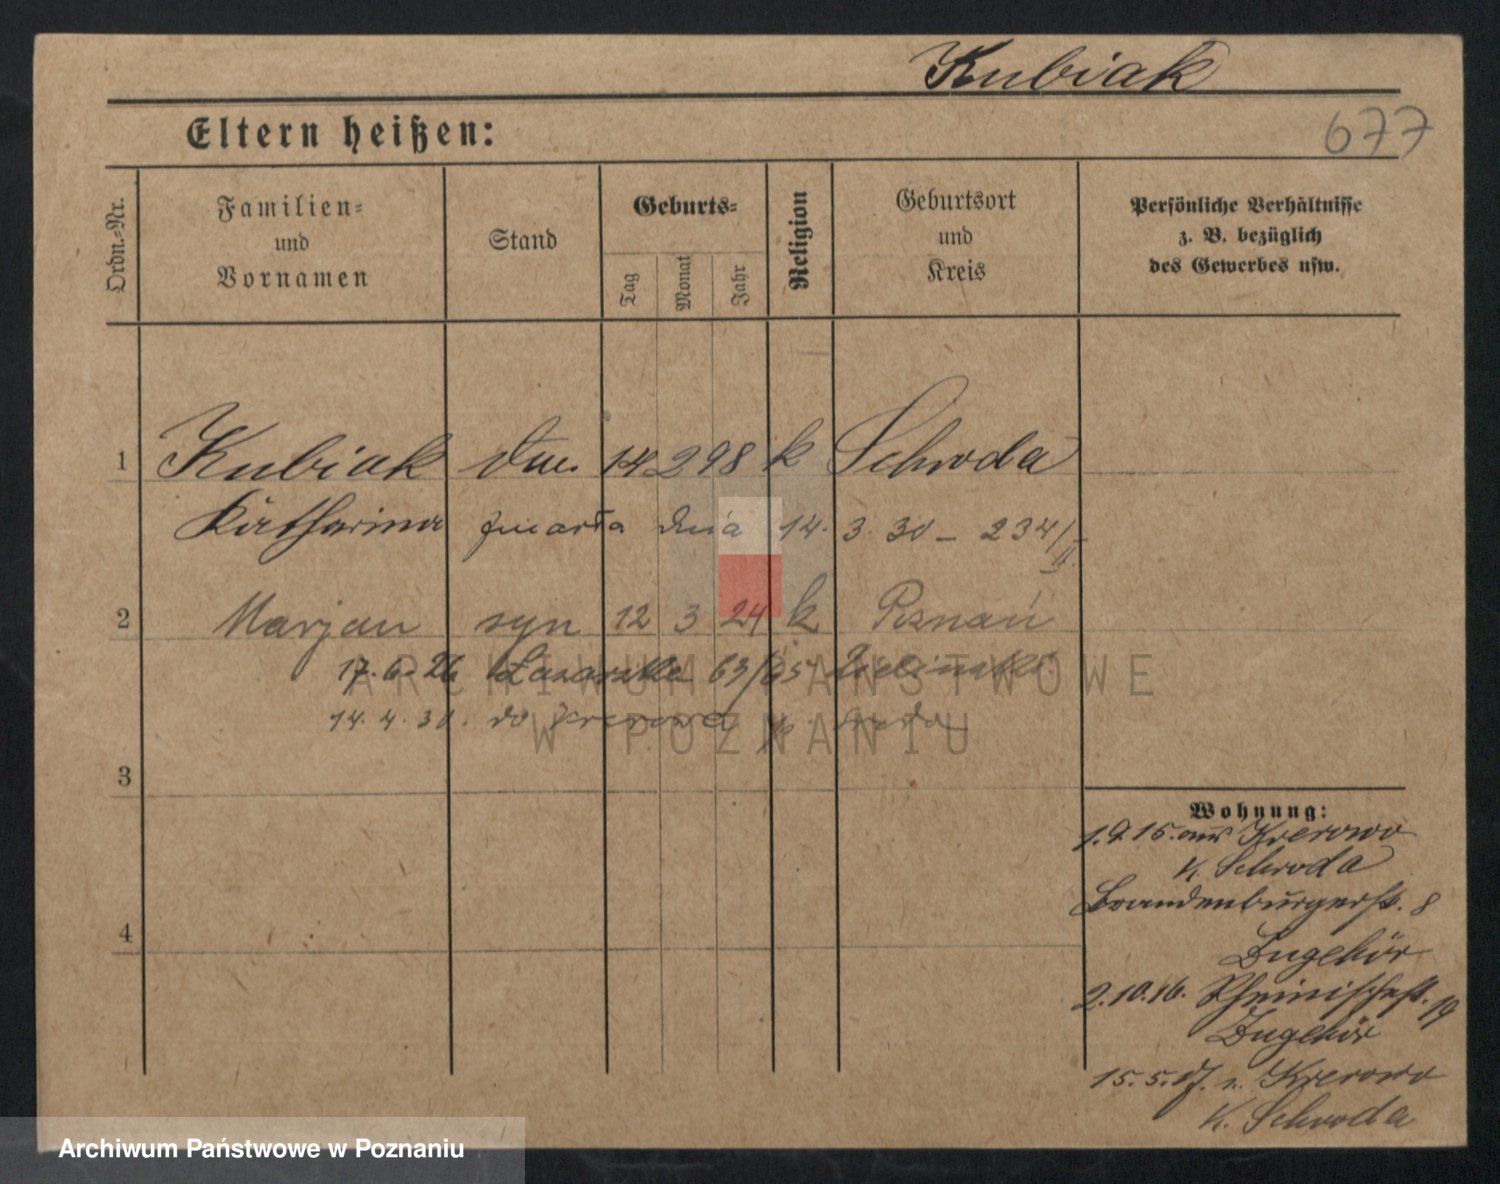 Kubiak
677
Eltern heißen:
Ordn.=Nr.
Familien=
und
Vornamen
Stand
Geburts=
Tag
Monat
Jahr
Religion
Geburtsort
und
Kreis
Persönliche Verhältnisse
z. B. bezüglich
des Gewerbes usw.
1 Kubiak 14 2 98 k Schroda
Katharina zmarła dnia 14. 3. 30 – 234/II.
2 Marjan syn 12 3 24 k Poznań
17. 6. 26 Łazarska 63/65
14. 4. 30. do Krerowa p. Środa
3
4
Wohnung:
1.9.15. aus Krerowo
K. Schroda
Brandenburgerstr. 8
Zugehör
2.10.16. Rheinischestr. 19
Zugehör
15.5.17. n. Krerowo
K. Schroda
ARCHIWUM PAŃSTWOWE
W POZNANIU
Archiwum Państwowe w Poznaniu